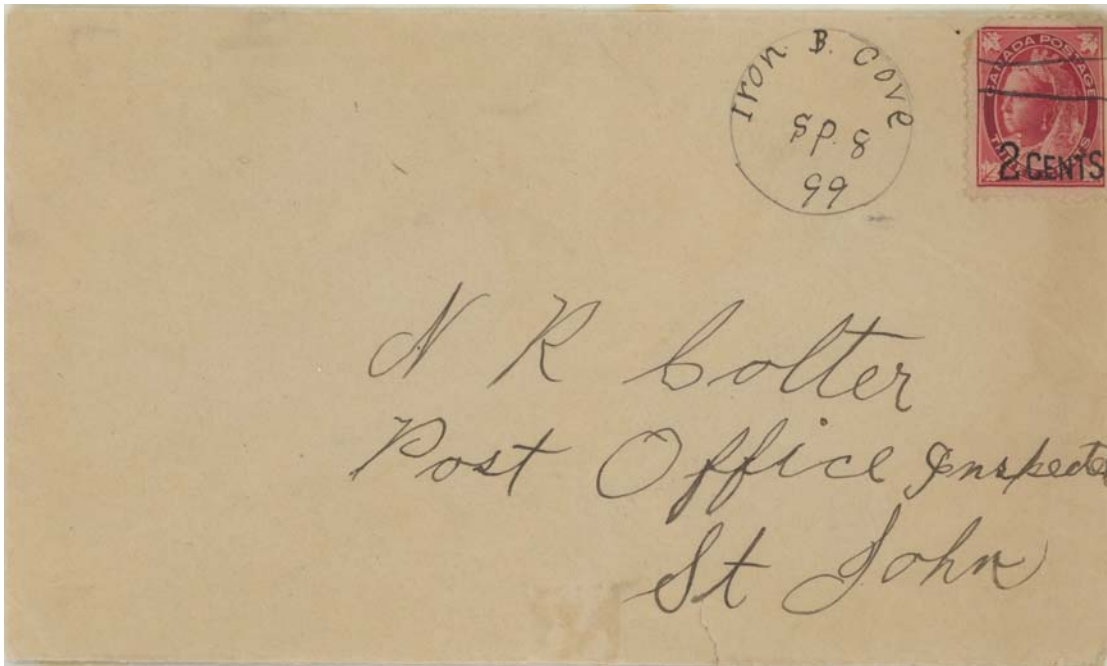 Iron B. Cove
SP. 8
99
CANADA POSTAGE
2 CENTS
N R Colter
Post Office Inspecto
St John